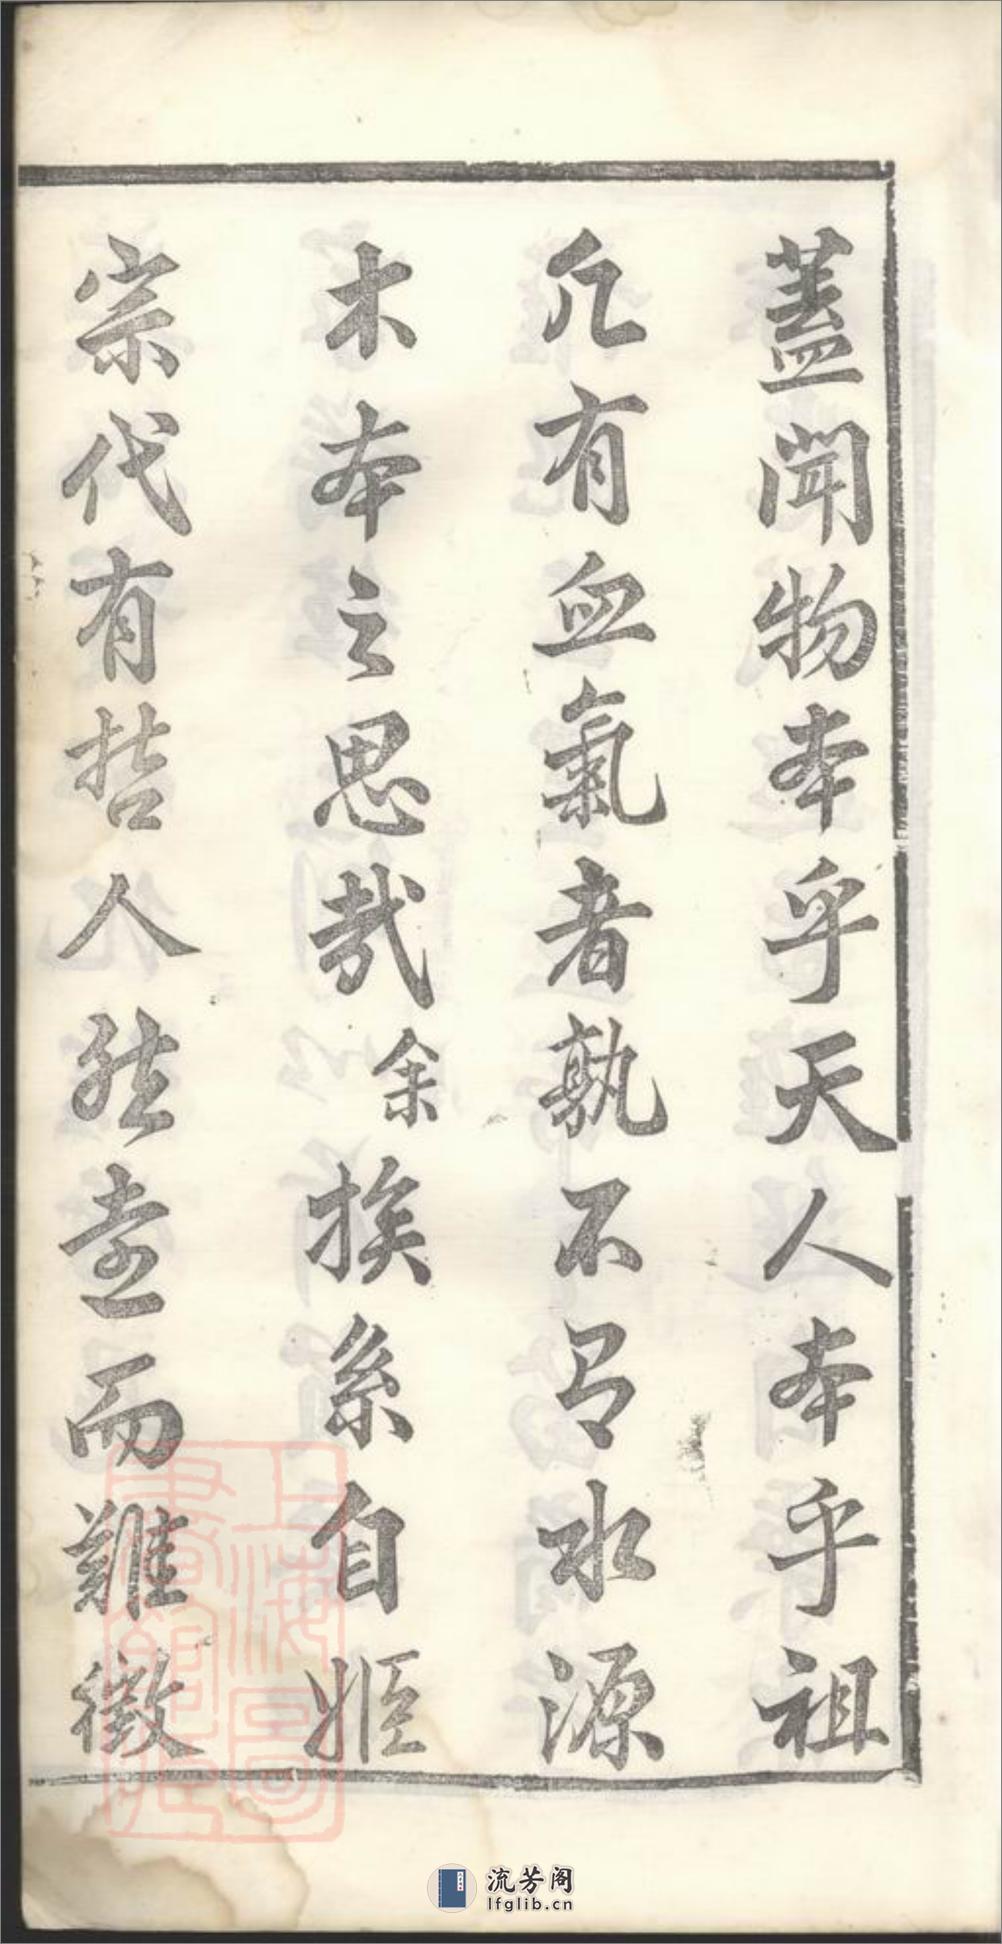 蓋聞物本乎天人本乎祖
凡有血氣者孰不有水源
木本之思哉余族系自姬
宗代有哲人然遠而難徵
上海圖
書館藏
流芳阁
lfglib.cn